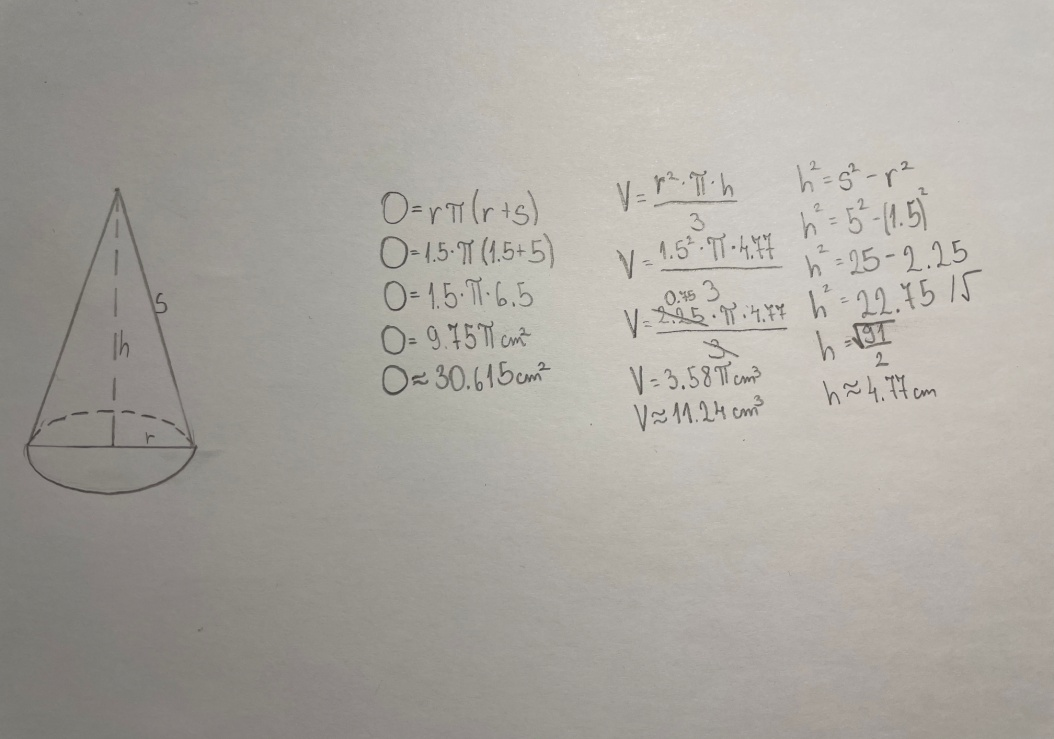 s
h
r
O=rπ(r+s)
O=1.5·π(1.5+5)
O=1.5·π·6.5
O=9.75π cm²
O≈30.615cm²
V=r²·π·h/3
V=1.5²·π·4.77/3
0.75
V=2.25·π·4.77/3
V=3.58π cm³
V≈11.24 cm³
h²=s²-r²
h²=5²-(1.5)²
h²=25-2.25
h²=22.75 /√
h=√91/2
h≈4.77 cm